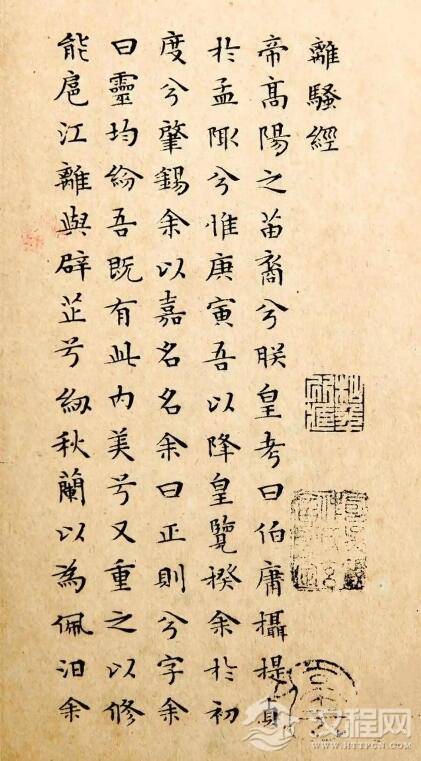 離騷經
帝髙陽之苗裔兮朕皇考曰伯庸攝提貞
於孟陬兮惟庚寅吾以降皇覽揆余於初
度兮肇錫余以嘉名名余曰正則兮字余
曰靈均紛吾既有此内美兮又重之以修
能扈江離與辟芷兮紉秋蘭以為佩汨余
文程网
HTTPCN.COM